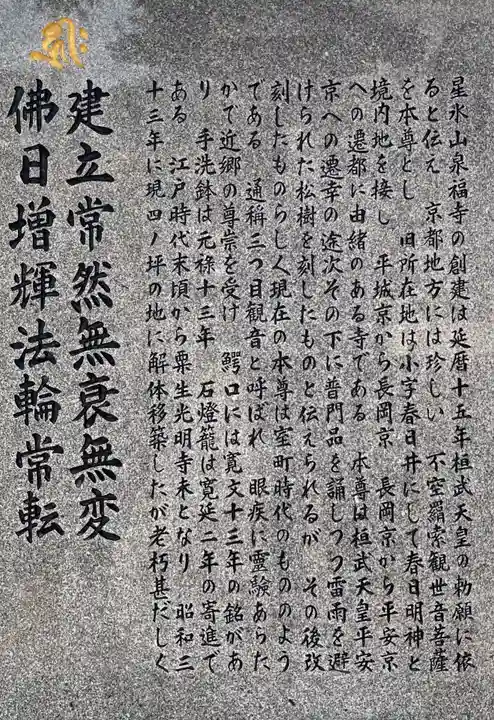 星氷山泉福寺の創建は延暦十五年桓武天皇の勅願に依
ると伝え 京都地方には珍しい 不空羂索観世音菩薩
を本尊とし 旧所在地は小字春日井にして春日明神と
境内地を接し 平城京から長岡京 長岡京から平安京
への遷都に由緒のある寺である 本尊は桓武天皇平安
京への遷幸の途次その下に普門品を誦しつつ雷雨を避
けられた松樹を刻したものと伝えられるが その後改
刻したものらしく現在の本尊は室町時代のもののよう
である 通称三つ目観音と呼ばれ 眼疾に霊験あらた
かで近郷の尊崇を受け 鰐口には寛文十三年の銘があ
り 手洗鉢は元祿十三年 石燈籠は寛延二年の寄進で
ある 江戸時代末頃から粟生光明寺末となり 昭和三
十三年に現四ノ坪の地に解体移築したが老朽甚だしく
建立常然無衰無変
佛日増輝法輪常転